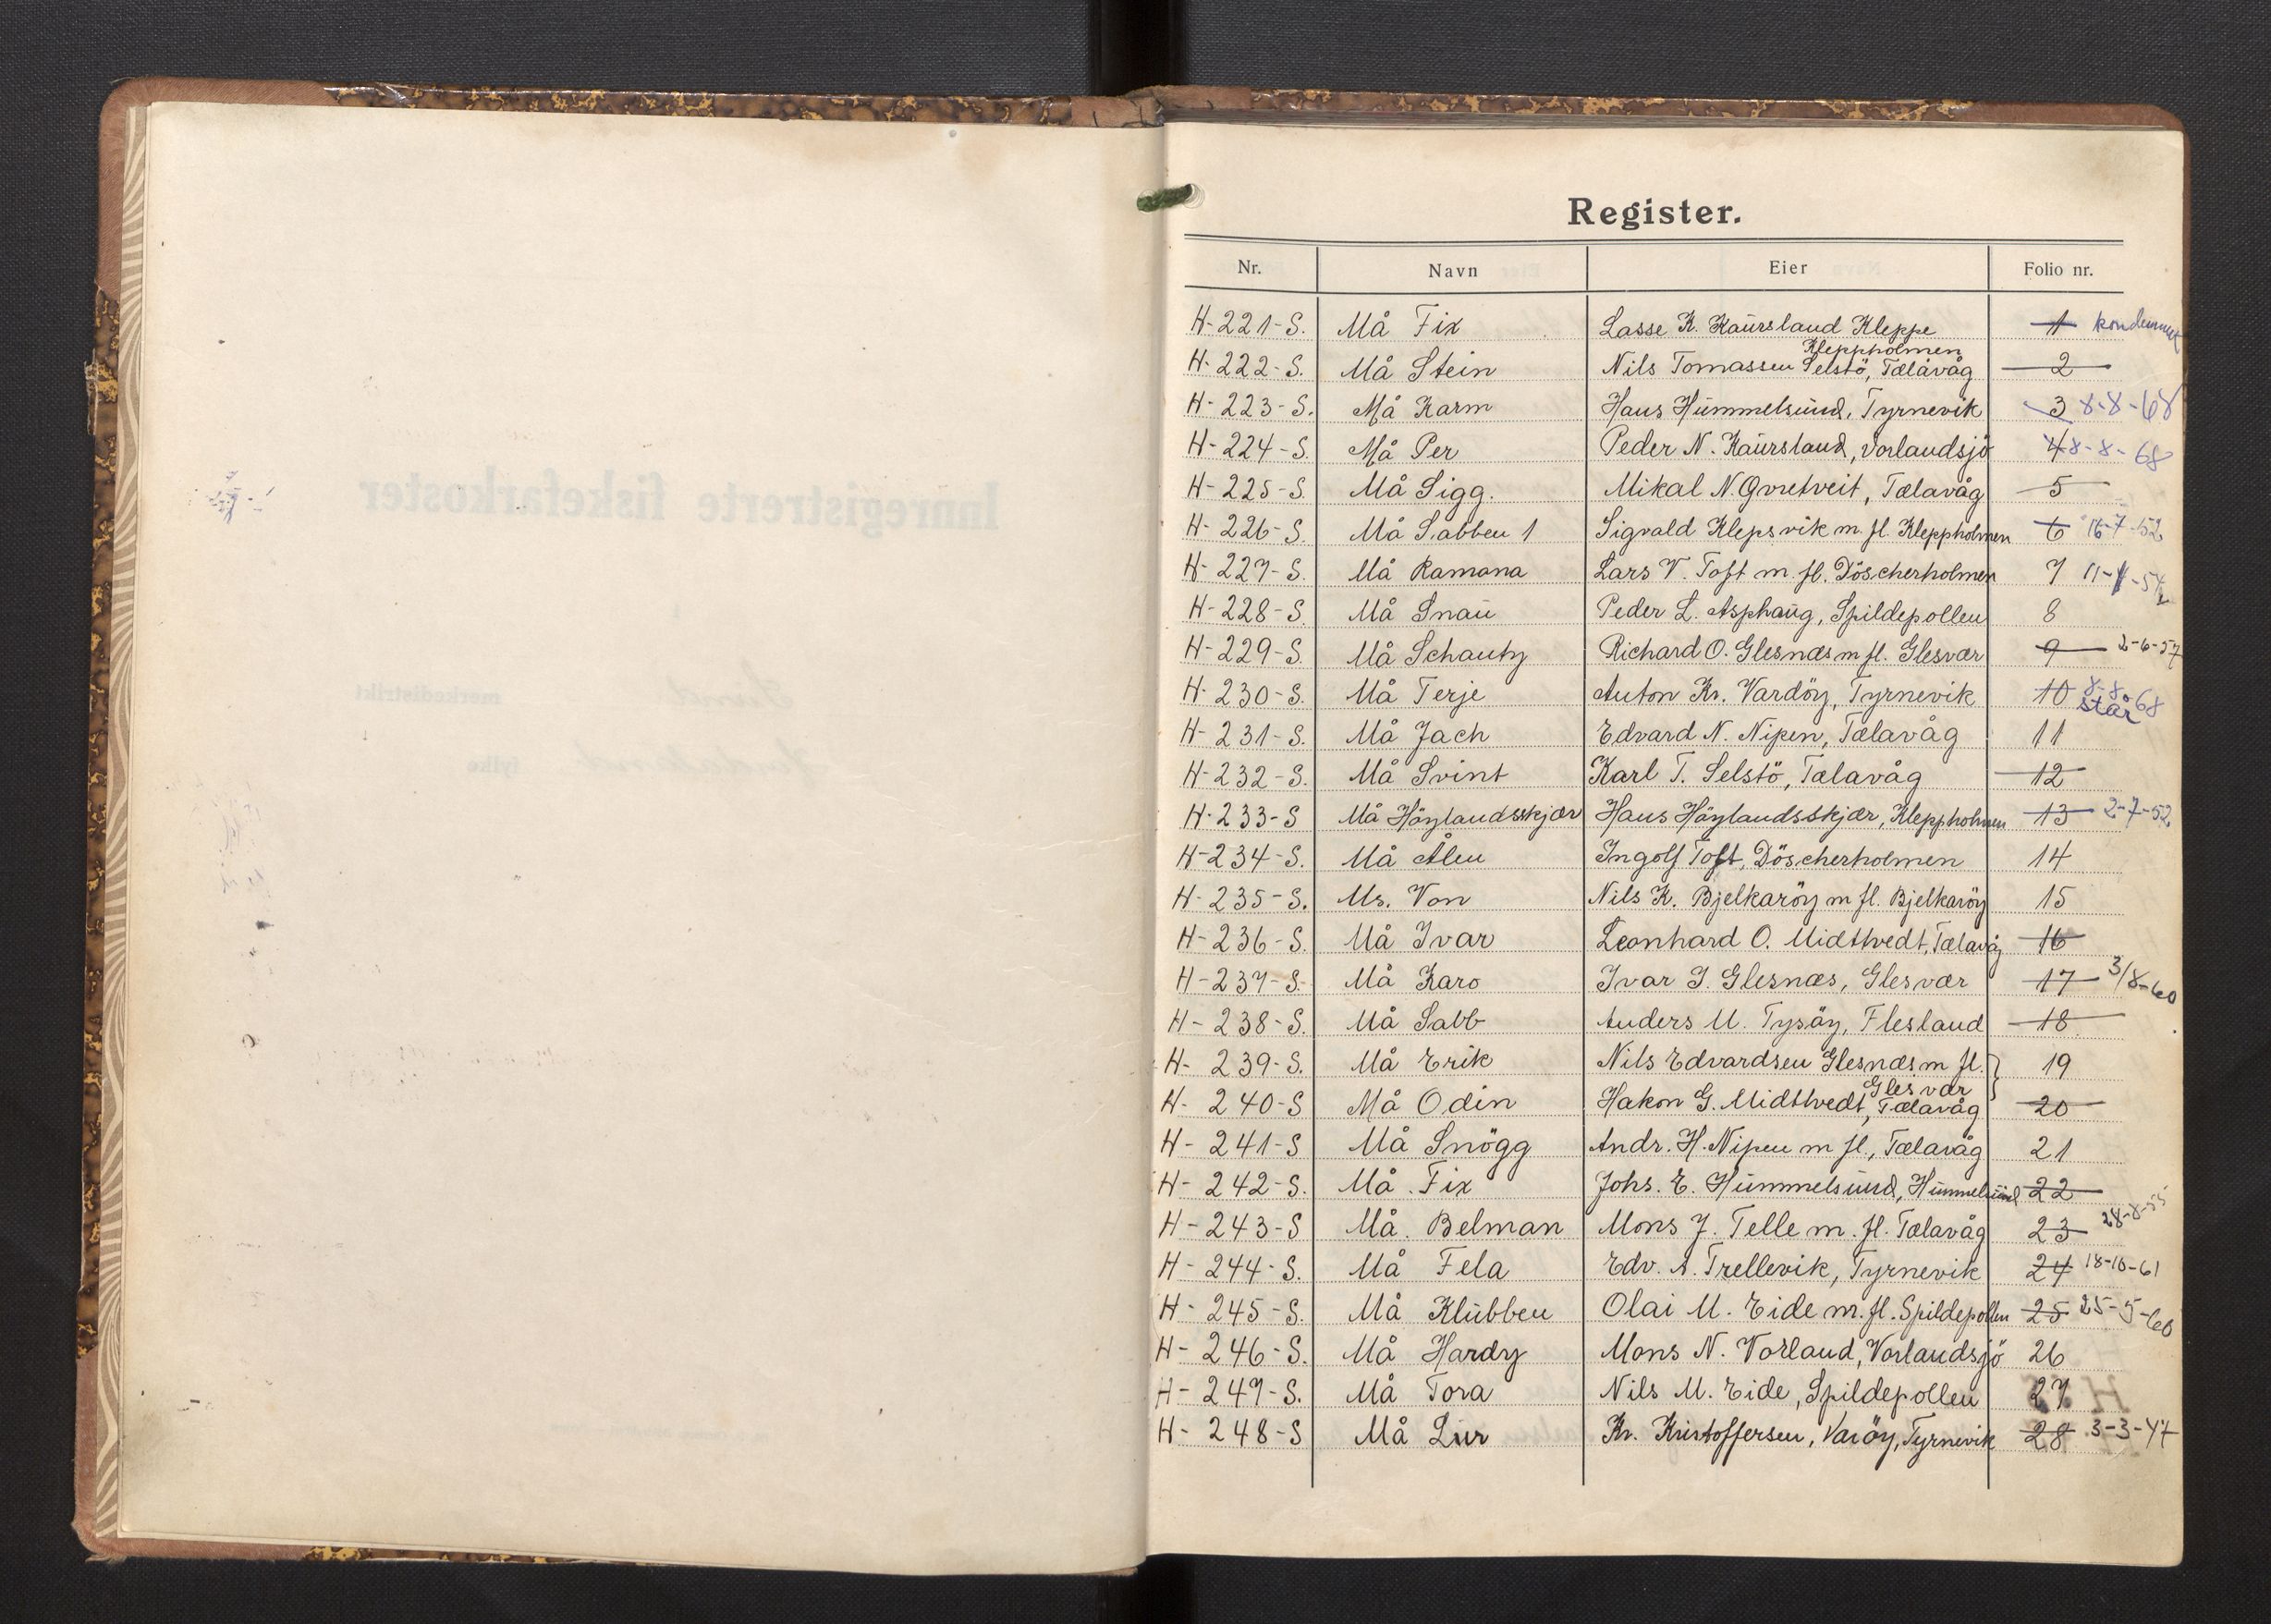 Innregistrerte fiskefarkoster
i
Sund merkedistrikt
Hordaland fylke
Register.
Nr. Navn Eier Folio nr.
H-221-S. Må Fix Lasse K. Kaursland Kleppe 1 kondemnert
Kleppholmen
H-222-S. Må Stein Nils Tomassen Selstö, Tælavåg 2
H-223-S. Må Karm Hans Hummelsund, Tyrnevik 3 8-8-68
H-224-S. Må Per Peder N. Kaursland, Vorlandsjö 4 8-8-68
H-225-S. Må Sigg. Mikal N. Qvretveit, Tælavåg 5
H-226-S. Må Sabben 1 Sigvald Klepsvik m. fl. Kleppholmen 6 16-7-52
H-227-S. Må Ramona Lars V. Toft m. fl. Döscherholmen 7
H-228-S. Må Snau Peder L. Asphaug, Spildepollen 8
H-229-S. Må Schauty Richard O. Glesnæs m fl. Glesvær 9 2-6-57
H-230-S. Må Terje Anton Kr. Vardöy, Tyrnevik 10 8-8-68
står
H-231-S. Må Jach Edvard N. Nipen, Tælavåg 11
H-232-S. Må Svint Karl T. Selstö, Tælavåg 12
H-233-S Må Höylandsskjær Hans Höylandsskjær, Kleppholmen 13 2-7-52
H-234-S. Må Ålen Ingolf Toft, Döscherholmen 14
H-235-S. Ms. Von Nils K. Bjelkaröy m fl. Bjelkaröy 15
H-236-S. Må Ivar Leonhard O. Midttvedt, Tælavåg 16
H-237-S. Må Karo Ivar J. Glesnæs, Glesvær 17 3/8-60
H-238-S. Må Sabb Anders M. Tysöy, Flesland 18
H-239-S. Må Erik Nils Edvardsen Glesnæs m fl. 19
Glesvær
H-240-S Må Odin Hakon G. Midttvedt, Tælavåg 20
H-241-S Må Snögg Andr. H. Nipen m fl., Tælavåg 21
H-242-S. Må. Fix Johs. E. Hummelsund, Hummelsund 22
H-243-S Må. Belman Mons J. Telle m. fl. Tælavåg 23 28-8-55
H-244-S. Må Fela Edv. A. Trellevik, Tyrnevik 24 18-10-61
H-245-S. Må Klubben Olai M. Eide m. fl. Spildepollen 25 25-5-60
H-246-S. Må Hardy Mons N. Vorland, Vorlandsjö 26
H-247-S. Må Tora Nils M. Eide, Spildepollen 27
H-248-S Må Lur Kr. Kristoffersen, Varöy, Tyrnevik 28 3-3-47